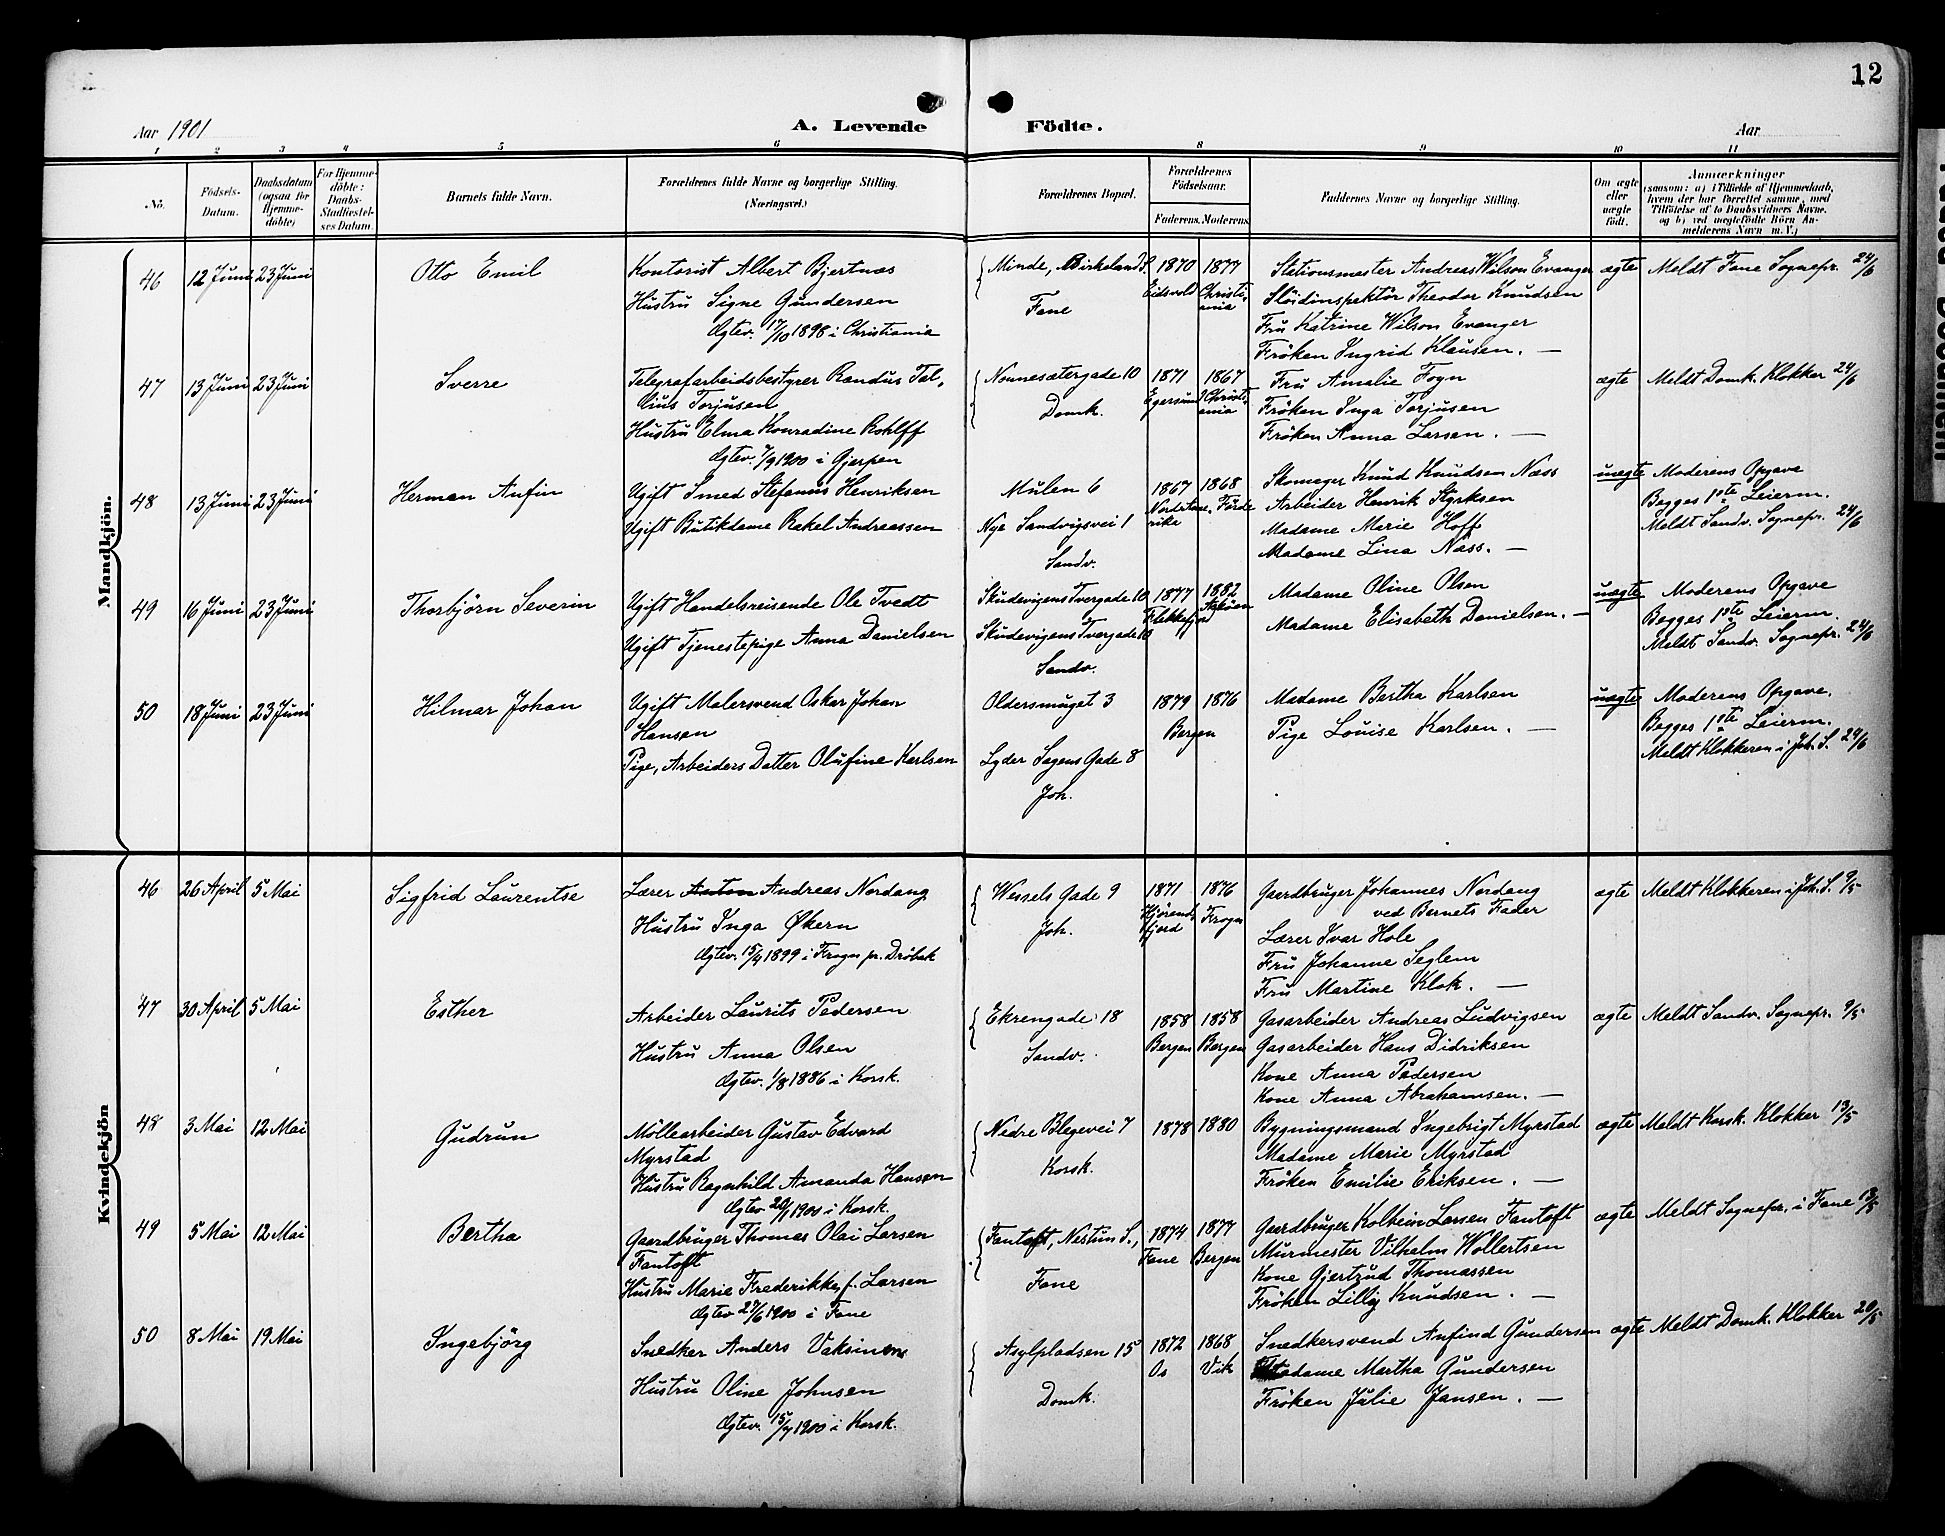 12
Aar 1901
A. Levende Födte.
Aar
1 2 3 4 5 6 8 9 10 11
No.
Födsels-Datum.
Daabsdatum (ogsaa for Hjemme-döbte)
For Hjemme-döbte: Daabs-Stadfæstel-ses Datum.
Barnets fulde Navn.
Forældrenes fulde Navne og borgerlige Stilling. (Næringsvei.)
Forældrenes Bopæl.
Forældrenes Födselsaar.
Faderens. Moderens.
Faddernes Navne og borgerlige Stilling.
Om ægte eller uægte födt.
Anmærkninger
(saasom: a) i Tilfælde af Hjemmedaab, hvem der har forrettet samme, med Tilföielse af to Daabsvidners Navne. og b) ved uægtefödte Börn An-melderens Navn m. V.)
Mandkjön.
46 12 Juni 23 Juni Otto Emil
Kontorist Albert Bjertnæs
Hustru Signe Gundersen
Ægtev. 17/10 1898 i Christiania
Minde, Birkeland S.
Fane
1870 Eidsvold
1877 Christiania
Stationsmester Andreas Wilson Evanger
Slöidinspektör Theodor Knudsen
Fru Katrine Wilson Evanger
Fröken Ingrid Klausen. —
ægte
Meldt Fane Sognepr. 24/6
47 13 Juni 23 Juni Sverre
Telegrafarbeidsbestyrer Randus Tal-
lius Torjusen
Hustru Elma Konradine Rohlff
Ægtev. 7/9 1900 i Gjerpen
Nonnesætergade 10
Domk.
1871 Egersund
1867 Christiania
Fru Amalie Foyn
Fröken Inga Torjusen
Fröken Anna Larsen. —
ægte
Meldt Domk. Klokker 24/6
48 13 Juni 23 Juni Herman Anfin
Ugift Smed Stefanus Henriksen
Ugift Butikdame Rekel Andreassen
Mulen 6
Nye Sandvigsvei 1
Sandv.
1867
1868 Förde
Skomager Knud Knudsen Næss
Arbeider Henrik Styrksen
Madame Marie Hoff
Madame Lina Næss. —
uægte
Moderens Opgave
Begges 1ste Leierm.
Meldt Sandv. Sognepr. 24/6
49 16 Juni 23 Juni Thorbjörn Severin
Ugift Handelsreisende Ole Tvedt
Ugift Tjenestepige Anna Danielsen
Skudevigens Tvergade 10
Skudevigens Tvergade 10
Sandv.
1877 Flekkefjord
1882 Askøen
Madame Oline Olsen
Madame Elisabeth Danielsen. —
uægte
Moderens Opgave
Begges 1ste Leierm.
Meldt Sandv. Sognepr. 24/6
50 18 Juni 23 Juni Hilmar Johan
Ugift Malersvend Oskar Johan
Hansen
Pige, Arbeiders Datter Olufine Karlsen
Oldersmuget 3
Lyder Sagens Gade 8
Joh.
1879 1876
Bergen
Madame Bertha Karlsen
Pige Louise Karlsen. —
uægte
Moderens Opgave.
Begges 1ste Leierm.
Meldt Klokkeren i Joh. S. 24/6
Kvindekjön
46 26 April 5 Mai Sigfrid Laurentse
Lærer Anton Andreas Nordang
Hustru Inga Økern
Ægtev. 15/4 1899 i Frogn pr. Dröbak
Wessels Gade 9
Joh.
1871 Hjørendfjord
1876 Frogn
Gaardbruger Johannes Nordang
ved Barnets Fader
Lærer Ivar Hole
Fru Johanne Seglem
Fru Martine Klok. —
ægte
Meldt Klokkeren i Joh. S. 9/5
47 30 April 5 Mai Esther
Arbeider Laurits Pedersen
Hustru Anna Olsen
Ægtev. 1/8 1886 i Korsk.
Ekrengade 18
Sandv.
1858 Bergen
1858 Bergen
Gasarbeider Andreas Ludvigsen
Gasarbeider Hans Didriksen
Kone Anna Pedersen
Kone Anna Abrahamsen. —
ægte
Meldt Sandv. Sognepr. 9/5
48 3 Mai 12 Mai Gudrun
Möllearbeider Gustav Edvard
Myrstad
Hustru Ragnhild Amanda Hansen
Ægtev. 20/1 1900 i Korsk.
Nedre Blegevei 7
Korsk.
1878 1880
Bygningsmand Ingebrigt Myrstad
Madame Marie Myrstad
Fröken Emilie Eriksen. —
ægte
Meldt Korsk. Klokker 13/5
49 5 Mai 12 Mai Bertha
Gaardbruger Thomas Olai Larsen
Fantoft
Hustru Marie Frederikke f. Larsen
Ægtev 27/6 1900 i Fane
Fantoft, Nestun S.,
Fane
1874 Fane
1877 Bergen
Gaardbruger Kolbein Larsen Fantoft
Murmester Vilhelm Wollertsen
Kone Gjertrud Thomassen
Fröken Lilly Knudsen. —
ægte
Meldt Sognepr. i Fane 13/5
50 8 Mai 19 Mai Ingebjörg
Snedker Anders Vaksinen
Hustru Oline Johnsen
Ægtev. 15/7 1900 i Korsk.
Asylpladsen 15
Domk.
1872 Os
1868 Vik
Snedkersvend Anfind Gundersen
Madame Martha Gundersen
Fröken Julie Jansen. —
ægte
Meldt Domk. Klokker 20/5